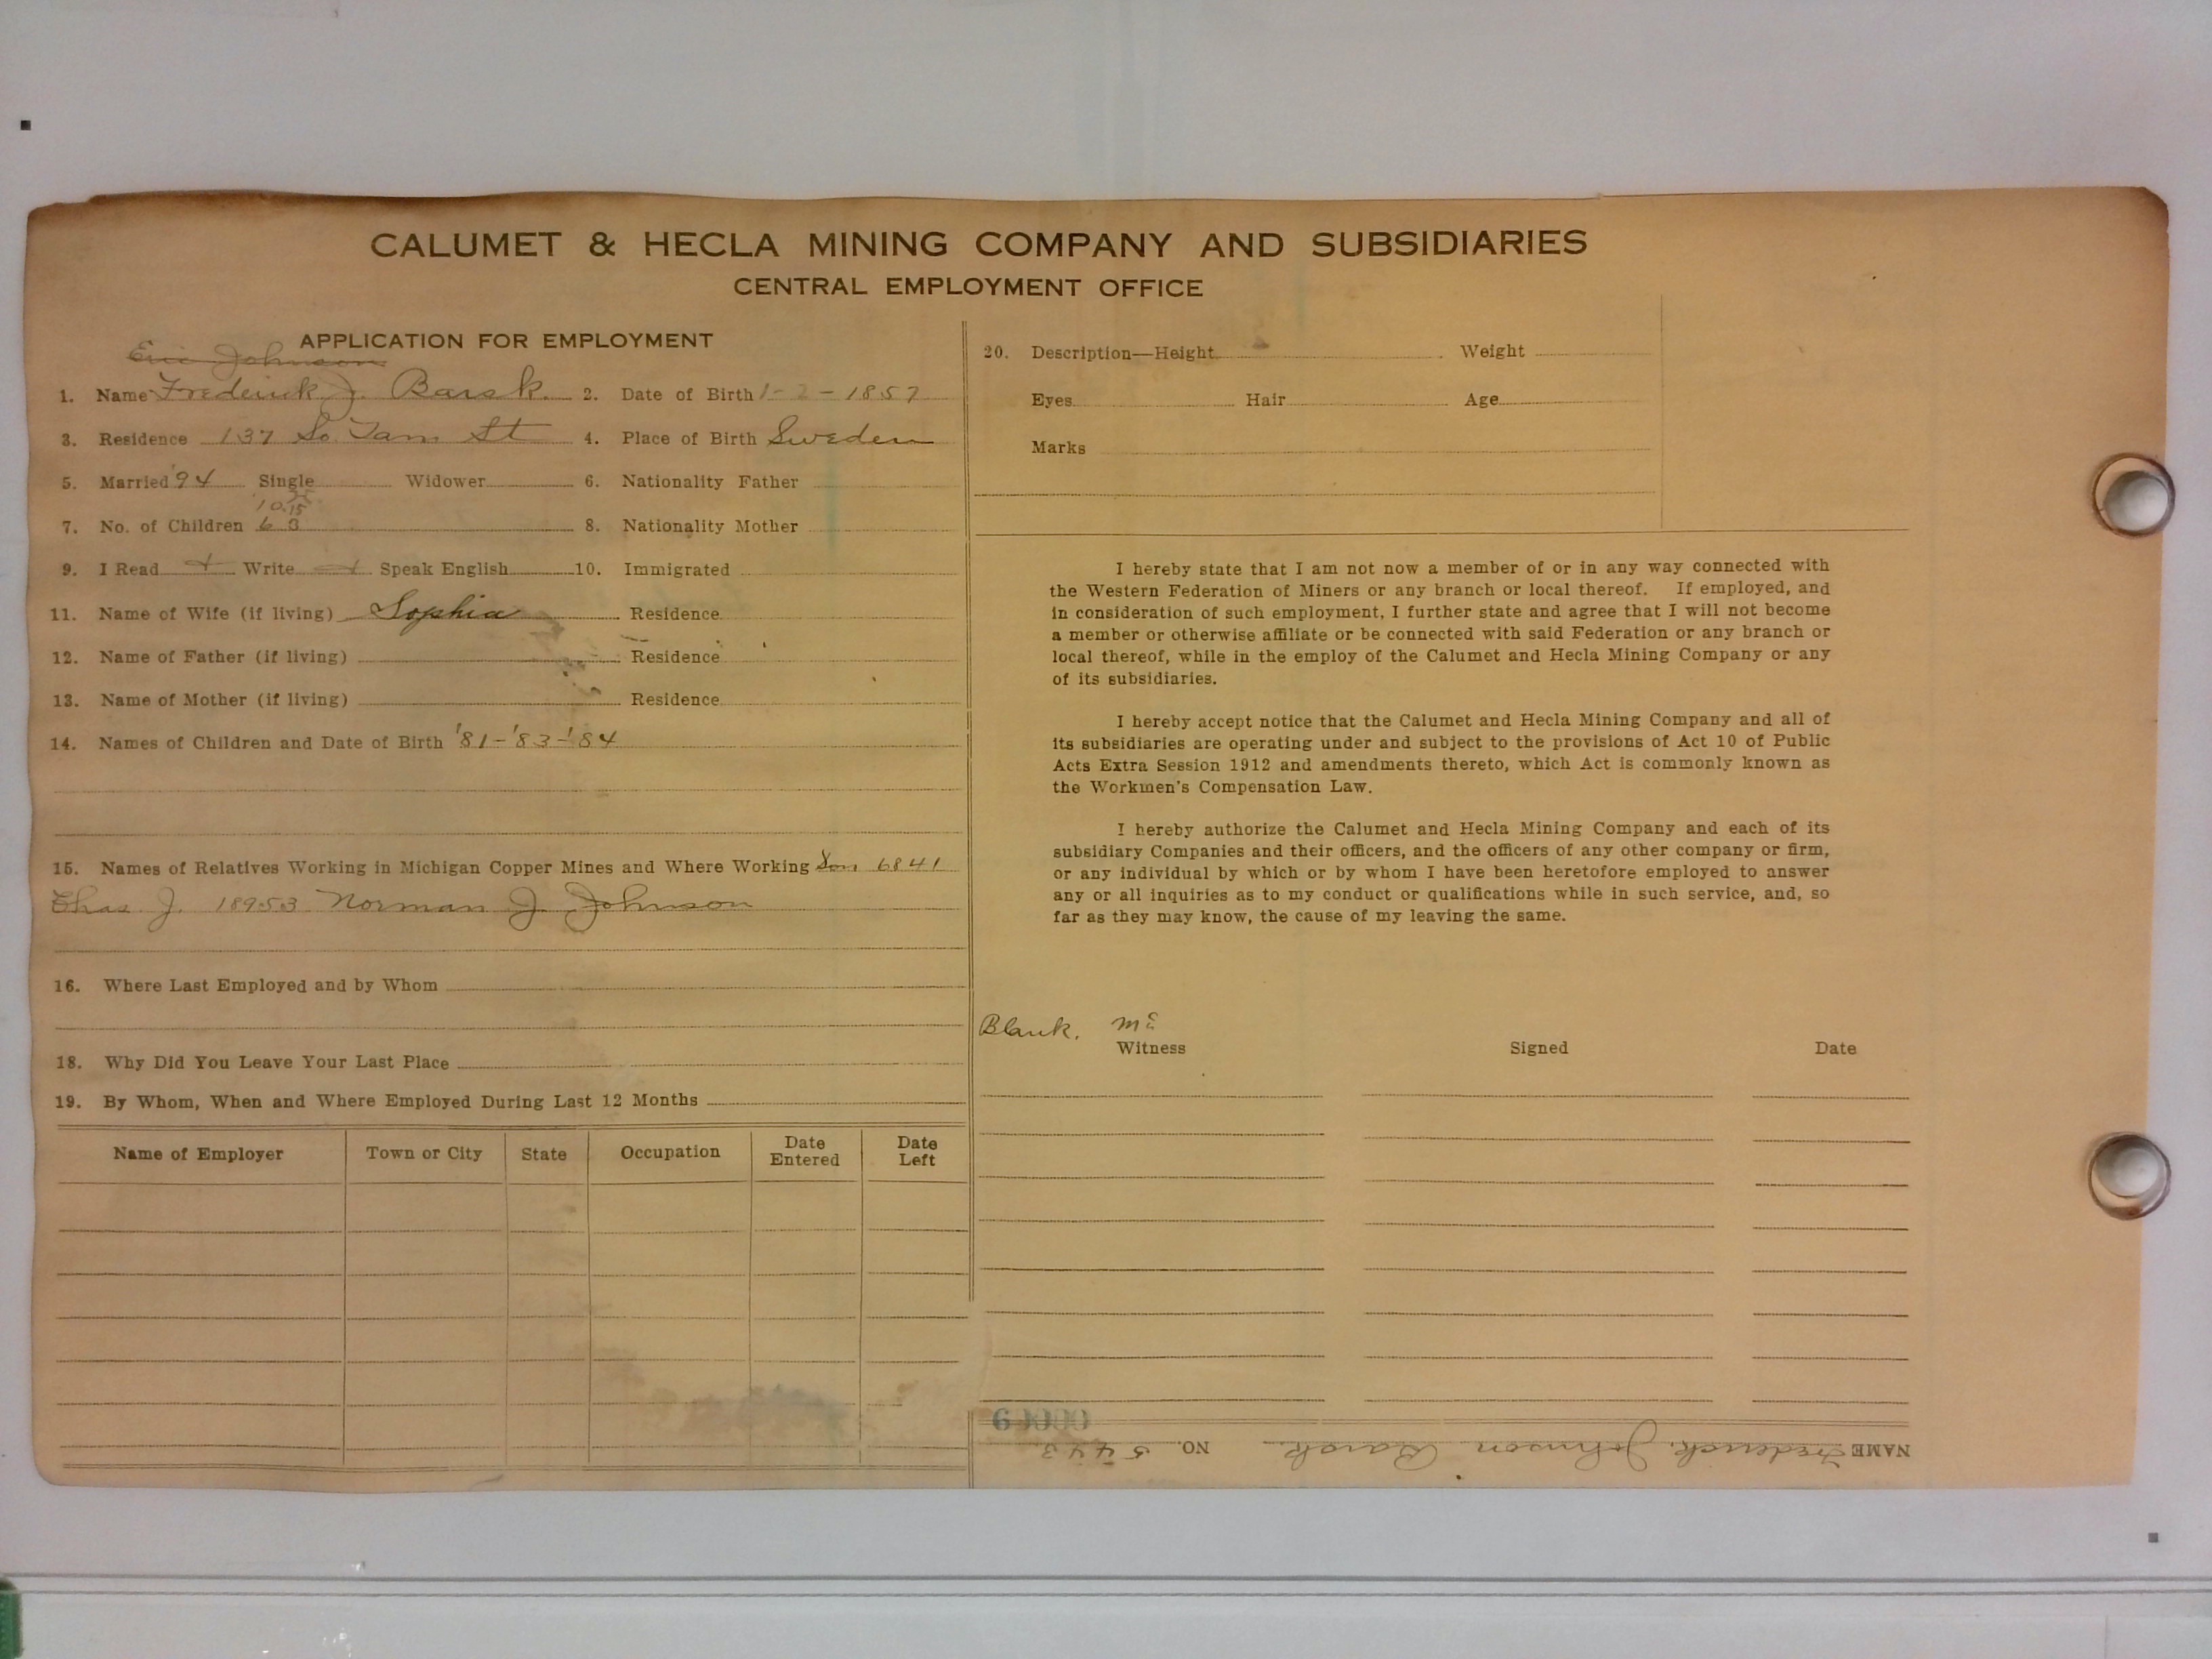 CALUMET & HECLA MINING COMPANY AND SUBSIDIARIES
CENTRAL EMPLOYMENT OFFICE
APPLICATION FOR EMPLOYMENT
Eric Johnson
1. Name Frederick J. Barsk. 2. Date of Birth 1-2-1857
3. Residence 137 So. Tam St 4. Place of Birth Sweden
5. Married '94 Single Widower 6. Nationality Father
7. No. of Children 6 3 8. Nationality Mother
9. I Read + Write + Speak English 10. Immigrated
11. Name of Wife (if living) Sophia Residence
12. Name of Father (if living) Residence
13. Name of Mother (if living) Residence
14. Names of Children and Date of Birth '81-'83-'84
15. Names of Relatives Working in Michigan Copper Mines and Where Working Son 6841
Chas. J. 18953 Norman J Johnson
16. Where Last Employed and by Whom
18. Why Did You Leave Your Last Place
19. By Whom, When and Where Employed During Last 12 Months
Name of Employer Town or City State Occupation Date Entered Date Left
20. Description—Height Weight
Eyes Hair Age
Marks
I hereby state that I am not now a member of or in any way connected with
the Western Federation of Miners or any branch or local thereof. If employed, and
in consideration of such employment, I further state and agree that I will not become
a member or otherwise affiliate or be connected with said Federation or any branch or
local thereof, while in the employ of the Calumet and Hecla Mining Company or any
of its subsidiaries.
I hereby accept notice that the Calumet and Hecla Mining Company and all of
its subsidiaries are operating under and subject to the provisions of Act 10 of Public
Acts Extra Session 1912 and amendments thereto, which Act is commonly known as
the Workmen's Compensation Law.
I hereby authorize the Calumet and Hecla Mining Company and each of its
subsidiary Companies and their officers, and the officers of any other company or firm,
or any individual by which or by whom I have been heretofore employed to answer
any or all inquiries as to my conduct or qualifications while in such service, and, so
far as they may know, the cause of my leaving the same.
Blank.
Witness Signed Date
NAME Frederick Johnson Barsk NO. 5443